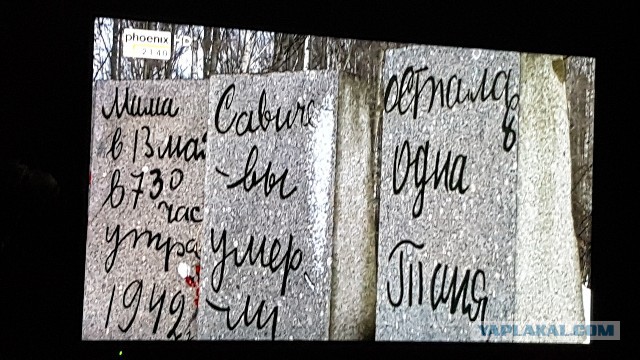 phoenix
21:40
Мама
в 13 мая
в 730
час
утра
1942
Савиче
-вы
умер
-ли
осталась
Одна
Таня
YAPLAKAL.COM